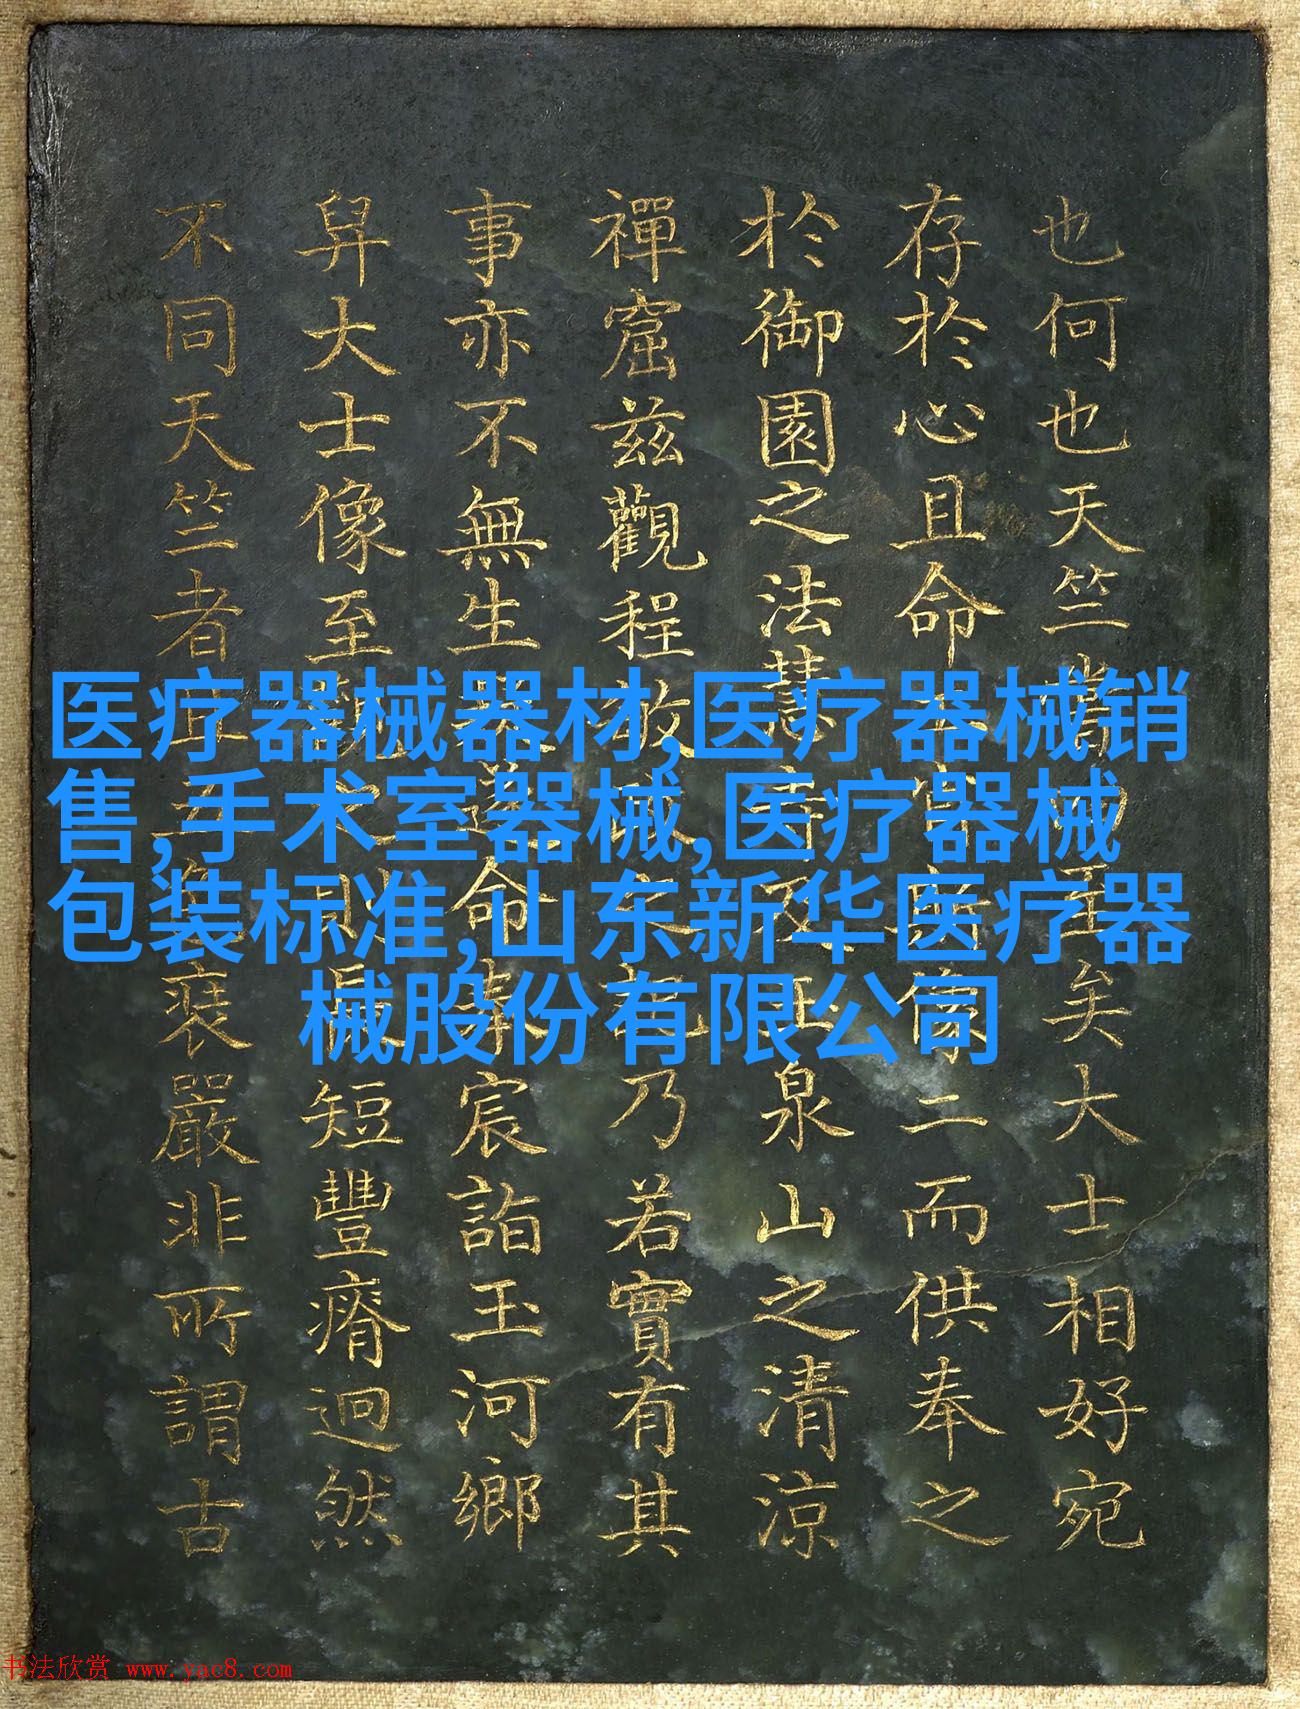 也何也天竺矣大士相好宛
存於心且命像二而供奉之
於御園之法慧寺及玉泉山之清涼
禪窟兹觀程乃若實有其
事亦不無生命宸詣玉河鄉
舁大士像至短豐瘠迥然
不同天竺者嚴非所謂古
医疗器械器材,医疗器械销
售,手术室器械,医疗器械
包装标准,山东新华医疗器
械股份有限公司
书法欣赏 www.yac8.com